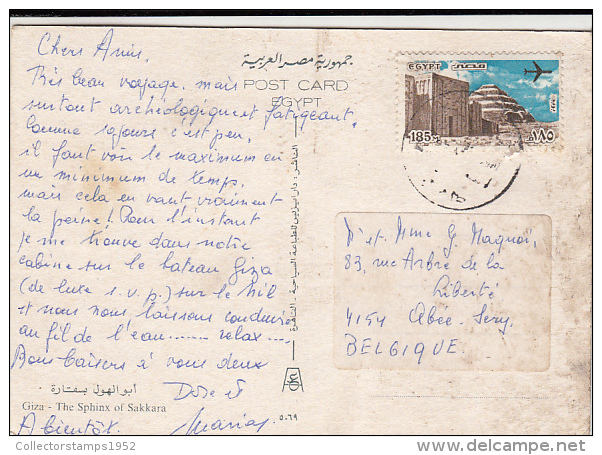 Chers Amis,
Très beau voyage, mais
surtout archéologique et fatigeant,
comme 10 jours c'est peu,
il faut voir le maximum en
un minimum de temps,
mais cela en vaut vraiment
la peine! Pour l'instant
je me trouve dans notre
cabine sur le bateau Giza
(de luxe s.v.p.) sur le Nil
et nous nous laissons conduire
au fil de l'eau...... relax....
Bons baisers à vous deux
et
Marias.
A bientôt.
جمهورية مصر العربية
POST CARD
EGYPT
أبو الهول بسقارة
Giza - The Sphinx of Sakkara
٥٠٦٩
EGYPT مصر
185
١٨٥
Mr et Mme G.
83, rue Arbre de la
Liberté
4154 Abée-Scry.
BELGIQUE.
Collectorstamps1952
delcampe.net